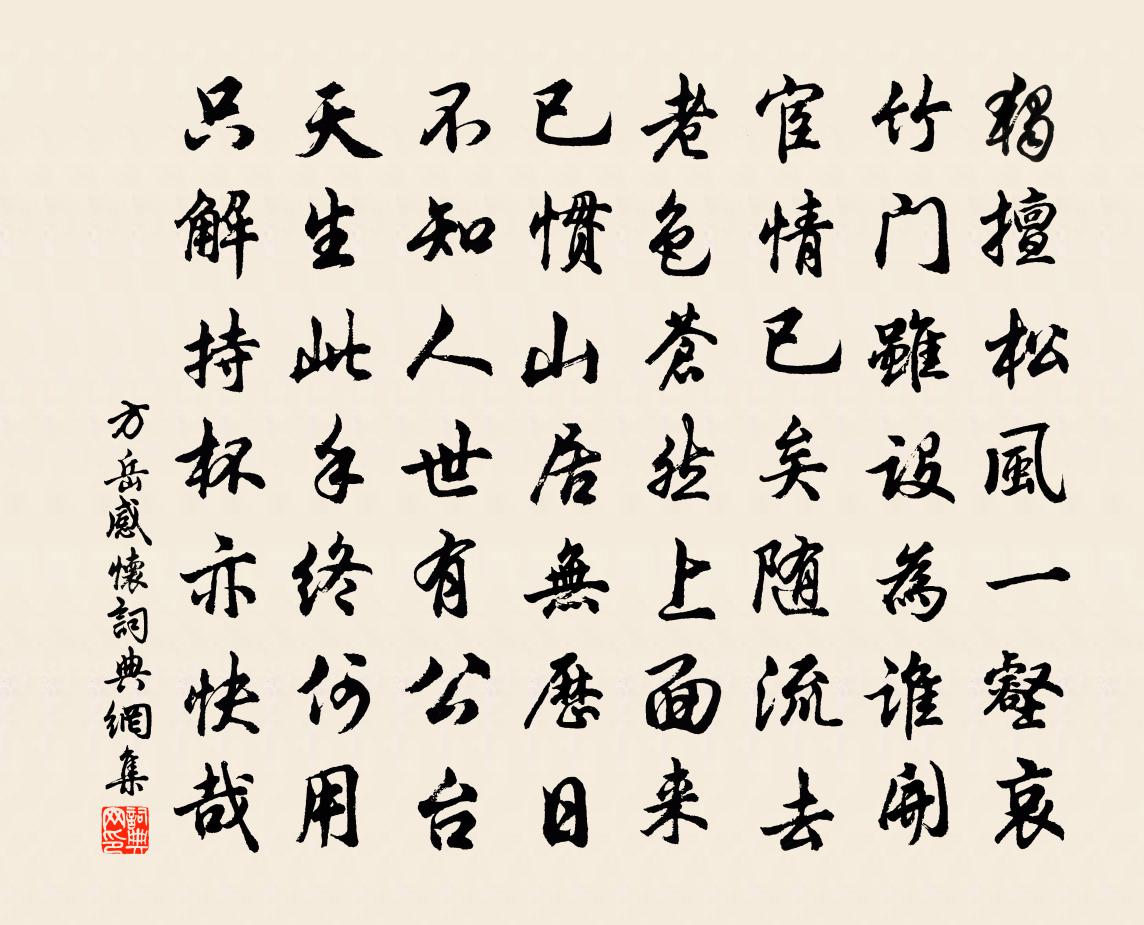 獨擅松風一壑哀
竹门雖设為谁開
宦情已矣随流去
老色蒼然上面来
已慣山居無歷日
不知人世有公台
天生此手终何用
只解持杯亦快哉
方岳感懷詞典網集
詞典网印